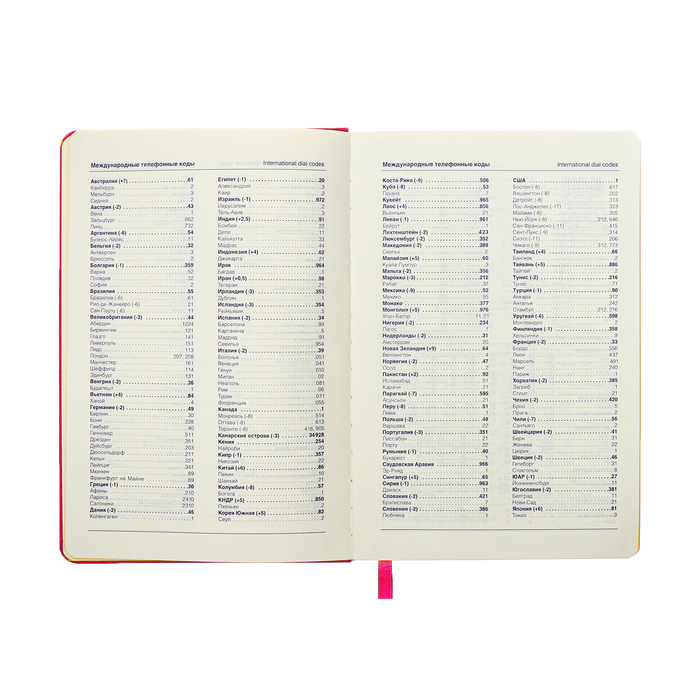 Международные телефонные коды International dial codes
Австралия (+7) 61
Канберра 2
Мельбурн 3
Сидней 2
Австрия (-2) 43
Вена 1
Зальцбург 662
Линц 732
Аргентина (-6) 54
Буэнос-Айрес 11
Бельгия (-2) 32
Антверпен 3
Брюссель 2
Болгария (-1) 359
Варна 52
Пловдив 32
София 2
Бразилия 55
Бразилиа (-6) 61
Рио-де-Жанейро (-6) 21
Сан-Паулу (-6) 11
Великобритания (-3) 44
Абердин 1224
Бирмингем 121
Глазго 141
Ливерпуль 151
Лидс 113
Лондон 207, 208
Манчестер 161
Шеффилд 114
Эдинбург 131
Венгрия (-2) 36
Будапешт 1
Вьетнам (+4) 84
Ханой 4
Германия (-2) 49
Берлин 30
Бонн 228
Гамбург 40
Ганновер 511
Дрезден 351
Дуйсбург 203
Дюссельдорф 211
Кельн 221
Лейпциг 341
Мюнхен 89
Франкфурт на Майне 69
Греция (-1) 30
Афины 210
Лариса 2410
Салоники 2310
Дания (-2) 45
Копенгаген 1
Египет (-1) 20
Александрия 3
Каир 2
Израиль (-1) 972
Иерусалим 2
Тель-Авив 3
Индия (+2,5) 91
Бомбей 22
Дели 11
Калькутта 33
Мадрас 44
Индонезия (+4) 62
Джакарта 21
Ирак 964
Багдад 1
Иран (+0,5) 98
Тегеран 21
Ирландия (-3) 353
Дублин 1
Исландия (-3) 354
Рейкьявик 5
Испания (-2) 34
Барселона 93
Картахена 5
Мадрид 91
Севилья 954
Италия (-2) 39
Болонья 051
Венеция 041
Генуя 010
Милан 02
Неаполь 081
Рим 06
Турин 011
Флоренция 055
Канада 1
Монреаль (-8) 514
Оттава (-8) 613
Торонто (-8) 416, 905
Канарские острова (-3) 34928
Кения 254
Найроби 20
Кипр (-1) 357
Никозия 22
Китай (+5) 86
Пекин 10
Шанхай 21
Колумбия (-8) 57
Богота
КНДР (+5) 850
Пхеньян 2
Корея Южная (+5) 82
Сеул 2
Международные телефонные коды International dial codes
Коста-Рика (-9) 506
Куба (-8) 53
Гавана 7
Кувейт 965
Лаос (+4) 856
Вьентьян 21
Ливан (-1) 961
Бейрут 1
Лихтенштейн (-2) 423
Люксембург (-2) 352
Македония (-2) 389
Скопье 2
Малайзия (+5) 60
Куала-Лумпур 3
Мальта (-2) 356
Марокко (-3) 212
Рабат 37
Мексика (-9) 52
Мехико 55
Монако 377
Монголия (+5) 976
Улан-Батор 11, 21
Нигерия (-2) 234
Лагос 1
Нидерланды (-2) 31
Амстердам 20
Новая Зеландия (+9) 64
Веллингтон 4
Норвегия (-2) 47
Осло 2
Пакистан (+2) 92
Исламабад 51
Карачи 21
Парагвай (-7) 595
Асунсьон 21
Перу (-8) 51
Лима 1
Польша (-2) 48
Варшава 22
Португалия (-3) 351
Лиссабон 21
Порту 22
Румыния (-1) 40
Бухарест 1
Саудовская Аравия 966
Эр-Рияд 1
Сингапур (+5) 65
Сирия (-1) 963
Дамаск 11
Словакия (-2) 421
Братислава 7
Словения (-2) 386
Любляна 1
США 1
Бостон (-8) 617
Вашингтон (-8) 202
Детройт (-8) 313
Лос-Анджелес (-11) 323
Майами (-8) 305
Нью-Йорк (-8) 212, 646
Сан-Франциско (-11) 415
Сент-Луис (-9) 314
Сиэтл (-11) 206
Чикаго (-9) 312, 773
Таиланд (+4) 66
Бангкок 2
Тайвань (+5) 886
Тайпей 2
Тунис (-2) 216
Тунис 71
Турция (-1) 90
Анкара 312
Анталья 242
Стамбул 212, 216
Уругвай (-6) 598
Монтевидео 2
Финляндия (-1) 358
Хельсинки 9
Франция (-2) 33
Бордо 556
Лион 437
Марсель 491
Нант 240
Париж 1
Хорватия (-2) 385
Загреб 1
Сплит 21
Чехия (-2) 420
Брно 5
Прага 2
Чили (-7) 56
Сантьяго 2
Швейцария (-2) 41
Берн 31
Женева 22
Цюрих 1
Швеция (-2) 46
Гетеборг 31
Стокгольм 8
ЮАР (-1) 27
Йоханнесбург 11
Югославия (-2) 381
Белград 11
Нови-Сад 21
Япония (+6) 81
Токио 3